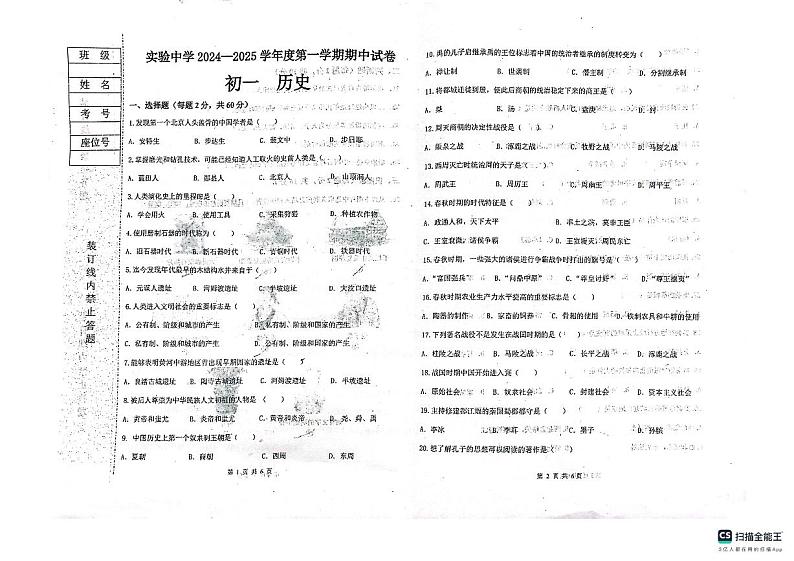 班 级
姓 名
考 号
座位号
装订线内禁止答题
实验中学 2024—2025 学年度第一学期期中试卷
初一 历史
一、选择题（每题 2 分，共 60 分）
1.发现第一个北京人头盖骨的中国学者是（ ）
A. 安特生 B. 步达生 C. 裴文中 D. 步日耶
2.掌握磨光和钻孔技术，可能已经知道人工取火的史前人类是（ ）
A. 蓝田人 B. 郧县人 C. 北京人 D. 山顶洞人
3.人类演化史上的里程碑是（ ）
A. 学会用火 B. 使用工具 C. 采集狩猎 D. 种植农作物
4.使用磨制石器的时代称为（ ）
A. 旧石器时代 B. 新石器时代 C. 青铜时代 D. 铁器时代
5.迄今发现年代最早的木结构水井来自于（ ）
A. 元谋人遗址 B. 河姆渡遗址 C. 半坡遗址 D. 大汶口遗址
6.人类进入文明社会的重要标志是（ ）
A. 公有制、阶级和城市的产生 B. 私有制、阶级和国家的产生
C. 私有制、阶级和城市的产生 D. 公有制、阶级和国家的产生
7.能够表明黄河中游地区曾出现早期国家的遗址是（ ）
A. 良渚古城遗址 B. 陶寺古城遗址 C. 河姆渡遗址 D. 半坡遗址
8.被后人尊崇为中华民族人文初祖的人物是（ ）
A. 黄帝和蚩尤 B. 炎帝和蚩尤 C. 黄帝和炎帝 D. 尧、舜、禹
9. 中国历史上第一个奴隶制王朝是（ ）
A. 夏朝 B. 商朝 C. 西周 D. 东周
第 1 页 共 6 页
10. 禹的儿子启继承禹的王位标志着中国的统治者继承的制度转变为（ ）
A. 禅让制 B. 世袭制 C. 僭主制 D. 分割继承制
11. 将都城迁徙到殷，使此后商朝的统治稳定下来的商王是（ ）
A. 桀 B. 汤 C. 盘庚 D. 纣
12. 周灭商朝的决定性战役是（ ）
A. 阪泉之战 B. 涿鹿之战 C. 牧野之战 D. 马陵之战
13. 西周灭亡时统治周的天子是（ ）
A. 周武王 B. 周厉王 C. 周幽王 D. 周平王
14. 春秋时期的时代特征是（ ）
A. 政通人和，天下太平 B. 率土之滨，莫非王臣
C. 王室衰微，诸侯争霸 D. 王宫毁灭，周民东亡
15. 春秋时期，一些强大的诸侯进行争霸战争时打出的旗号是（ ）
A. “富国强兵” B. “问鼎中原” C. “尊皇讨奸” D. “尊王攘夷”
16. 春秋时期农业生产力水平提高的重要标志是（ ）
A. 陶器的制作 B. 家畜的饲养 C. 骨耜的使用 D. 铁制农具和牛耕的使用
17. 下列著名战役不是发生在战国时期的是（ ）
A. 桂陵之战 B. 马陵之战 C. 长平之战 D. 涿鹿之战
18. 战国时期中国开始进入到（ ）
A. 原始社会 B. 奴隶社会 C. 封建社会 D. 资本主义社会
19. 主持修建都江堰的秦国蜀郡郡守是（ ）
A. 李冰 B. 李耳 C. 墨子 D. 孙膑
20. 想了解孔子的思想可以阅读的著作是（ ）
第 2 页 共 6 页
CS 扫描全能王
3亿人都在用的扫描App